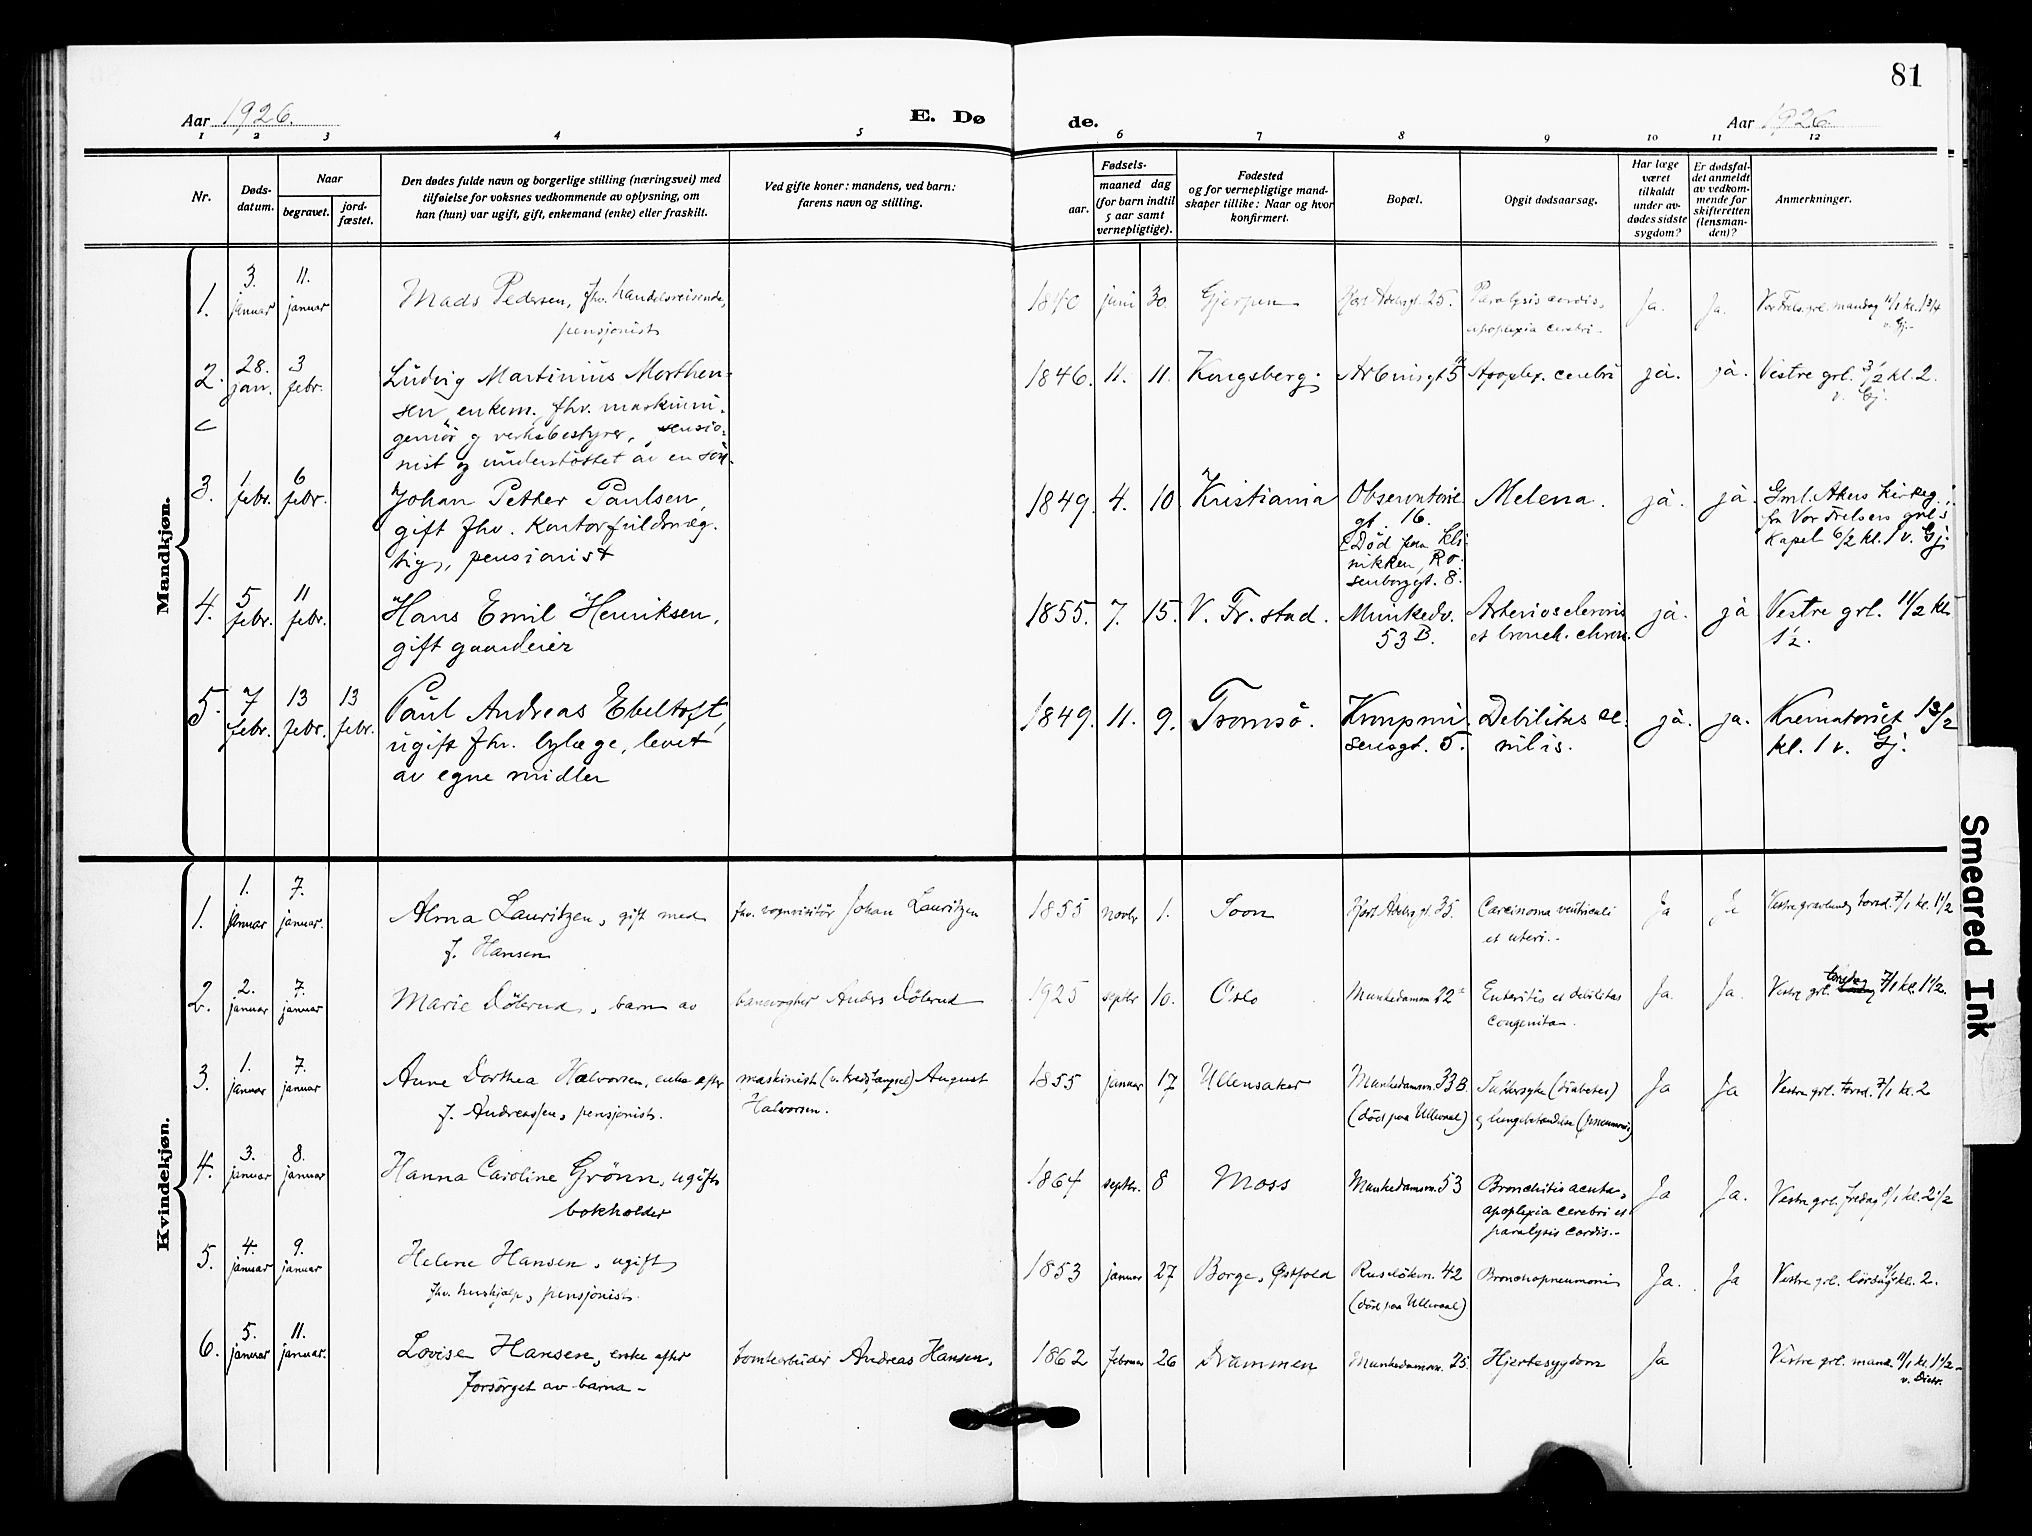 81
Aar 1926.
E. Døde.
Aar 1926.
1 2 3 4 5 6 7 8 9 10 11 12
Nr.
Døds-
datum.
Naar
begravet.
jord-
fæstet.
Den dødes fulde navn og borgerlige stilling (næringsvei) med
tilføielse for voksnes vedkommende av oplysning, om
han (hun) var ugift, gift, enkemand (enke) eller fraskilt.
Ved gifte koner: mandens, ved barn:
farens navn og stilling.
Fødsels-
aar.
maaned dag
(for barn indtil
5 aar samt
vernepligtige).
Fødested
og for vernepligtige mand-
skaper tillike: Naar og hvor
konfirmert.
Bopæl.
Opgit dødsaarsag.
Har læge
været
tilkaldt
under av-
dødes sidste
sygdom?
Er dødsfal-
det anmeldt
av vedkom-
mende for
skifteretten
(lensman-
den)?
Anmerkninger.
Mandkjøn.
1. 3. januar 11. januar Mads Pedersen, fhv. handelsreisende,
pensjonist
1840 juni 30. Gjerpen Hjort Adelersgt. 25. Paralysis cordis,
apoplexia cerebri Ja. Ja. Vor Frels. grl. mandag 11/1 kl. 1 3/4
v. Gj.
2. 28. jan. 3 febr. Ludvig Martinius Morthen-
sen, enkem., fhv. maskinin-
geniør og verksbestyrer, pensio-
nist og understøttet av en søn.
1846. 11. 11. Kongsberg. Arbinsgt 5 Apoplex. cerebri ja. ja. Vestre grl. 3/2 kl. 2.
v. Gj.
3. 1 febr. 6 febr. Johan Petter Paulsen,
gift fhv. kontorfuldmæg-
tig, pensionist
1849. 4. 10. Kristiania Observatorie
gt. 16.
Død paa Kli-
nikken, Ro-
senborggt. 8.
Melena. ja. ja. Gml. Akers kirkeg.
fra Vor Frelsers grl.s
kapel 6/2 kl. 1 v. Gj.
4. 5 febr. 11 febr. Hans Emil Henriksen,
gift gaardeier
1855. 7. 15. V. Fr.stad. Munkedv.
53 B.
Arteriosclerosis
et bronch. chron. ja. ja Vestre grl. 11/2 kl.
1 1/2.
5. 7 febr. 13 febr. 13 febr. Paul Andreas Ebeltoft,
ugift fhv. bylæge, levet
av egne midler
1849. 11. 9. Tromsø.
sensgt. 5.
Debilitas se-
nilis. ja. ja. Krematoriet 13/2
kl. 1 v. Gj.
Kvindekjøn.
1. 1. januar 7. januar. Alma Lauritzen, gift med
f. Hansen
fhv. vognvisitør Johan Lauritzen
1855 novbr 1. Soon Hjort Adelersgt. 35. Carcinoma ventriculi
et uteri. Ja Ja Vestre gravlund torsd. 7/1 kl. 1 1/2
2. 2. januar 7. januar Marie Dølerud, barn av
banevogter Anders Dølerud
1925 septbr 10. Oslo Munkedamsv. Enteritis et debilitas
congenita. Ja. Ja. Vestre grl. torsdag 7/1 kl. 1 1/2.
3. 1. januar 7. januar Anne Dorthea Halvorsen, enke efter
f. Andreassen, pensjonist.
maskinist (v. kredsfængsel) August
Halvorsen.
1855 januar 17 Ullensaker Munkedamsv. 33 B.
(død paa Ullevaal)
Sukkersyke (diabetes)
og lungebetændelse (pneumoni) Ja Ja Vestre grl. torsd. 7/1 kl. 2
4. 3. januar 8. januar Hanna Caroline Grønn, ugift
bokholder
1864 septbr. 8 Moss Munkedamsv. 53 Bronchitis acuta,
apoplexia cerebri et
paralysis cordis. Ja Ja. Vestre grl. fredag 8/1 kl. 2 1/2
5. 4. januar 9. januar Helene Hansen, ugift
fhv. hushjelp, pensjonist.
1853 januar 27 Borge, Østfold Ruseløkvn. 42
(død paa Ullevaal)
Bronchopneumoni Ja. Ja Vestre grl. lørdag 9/1 kl. 2.
6. 5. januar 11. januar. Lovise Hansen, enke efter
forsørget av barna
tomtearbeider Andreas Hansen.
1862 februar 26 Drammen Munkedamsv. 25. Hjertesygdom Ja Vestre grl. mand. 11/1 kl. 1 1/2
v. Dietr.
Smeared Ink